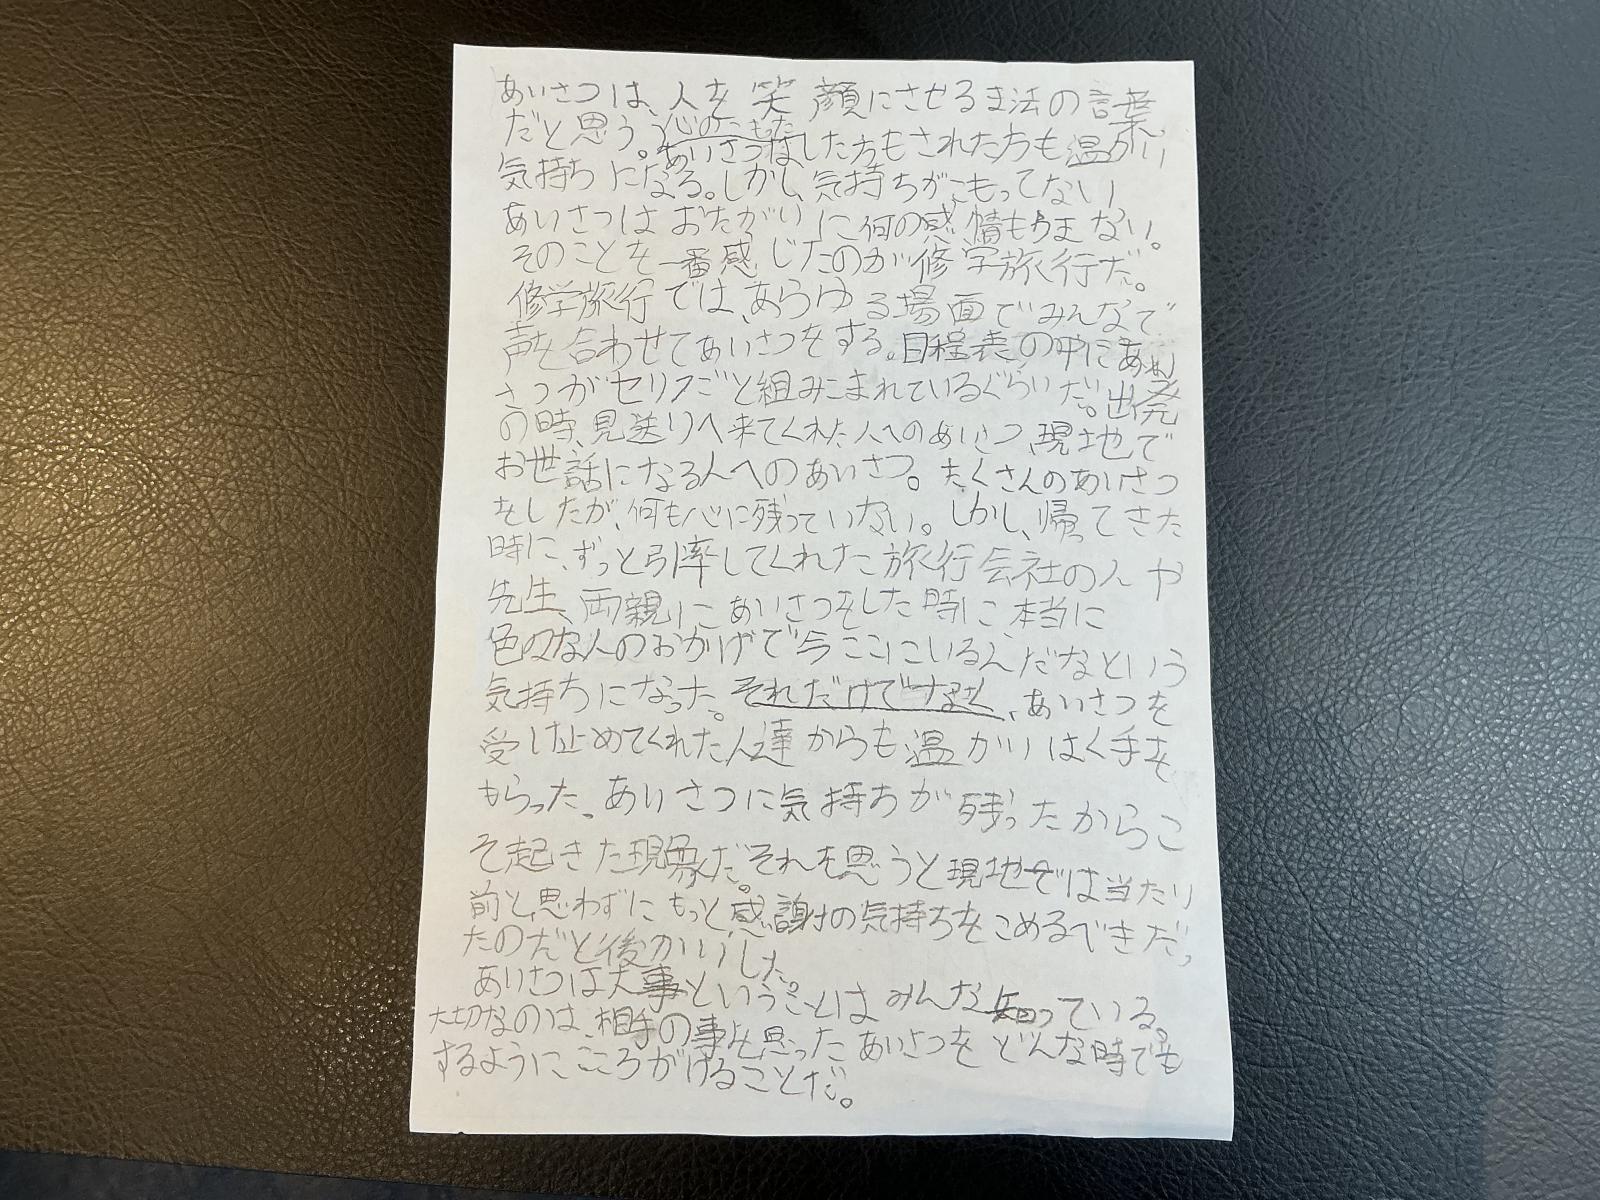 あいさつは、人を笑顔にさせるま法の言葉
だと思う。心のこもった
あいさつはした方もされた方も温かい
気持ちになる。しかし、気持ちがこもってない
あいさつはおたがいに何の感情もうまない。
そのことを一番感じたのが修学旅行だ。
修学旅行では、あらゆる場面でみんなで
声を合わせてあいさつをする。日程表の中にあい
さつがセリフごと組みこまれているぐらいだ。出発
の時、見送りへ来てくれた人へのあいさつ、現地で
お世話になる人へのあいさつ。たくさんのあいさつ
をしたが、何も心に残っていない。しかし、帰ってきた
時に、ずっと引率してくれた旅行会社の人や
先生、両親にあいさつをした時に、本当に
色のな人のおかげで今ここにいるんだなという
気持ちになった。それだけでなく、あいさつを
受け止めてくれた人達からも温かいはく手を
もらった。あいさつに気持ちが残ったからこ
そ起きた現象だ。それを思うと現地では当たり
前と思わずにもっと感謝の気持ちをこめるべきだっ
たのだと後かいした。
あいさつは大事ということはみんな知っている。
大切なのは、相手の事を思ったあいさつをどんな時でも
するようにこころがけることだ。